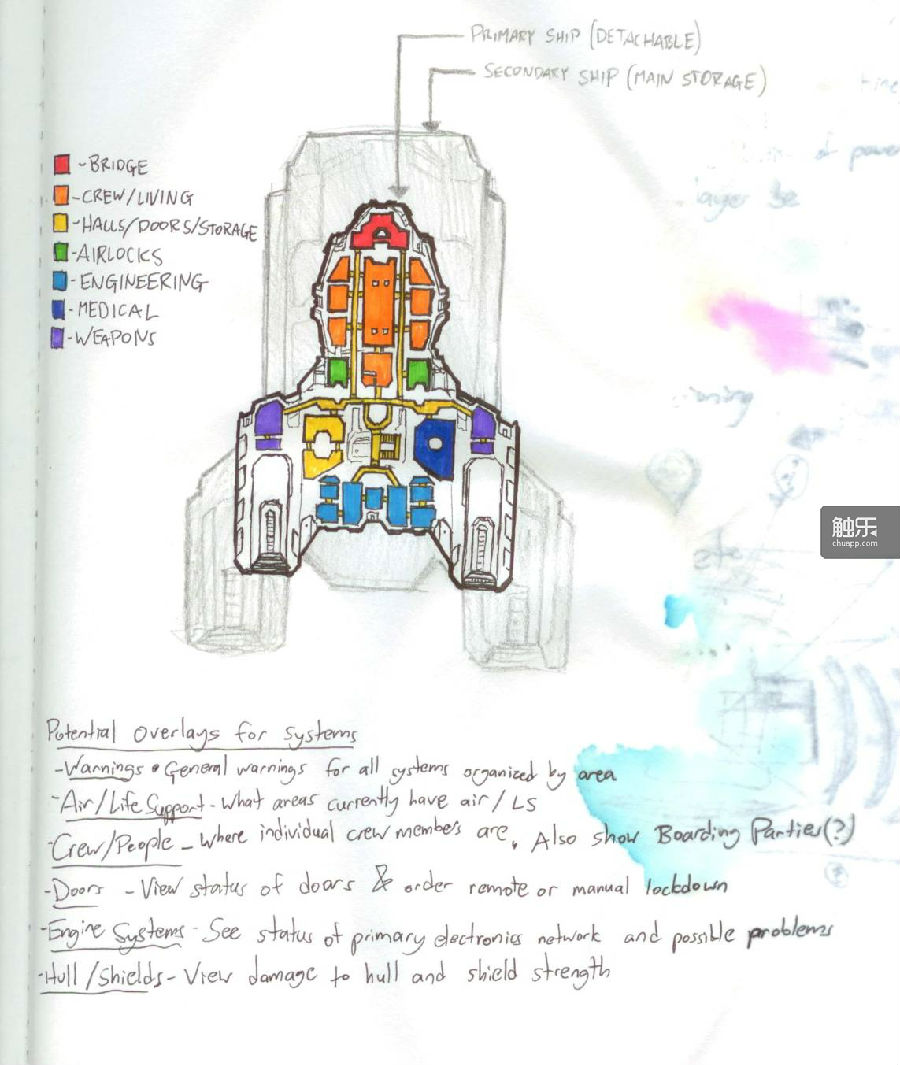 PRIMARY SHIP (DETACHABLE)
SECONDARY SHIP (MAIN STORAGE)
-BRIDGE
-CREW/LIVING
-HALLS/DOORS/STORAGE
-AIRLOCKS
-ENGINEERING
-MEDICAL
-WEAPONS
of power
layer
触乐
chuapp.com
Potential Overlays for Systems
-Warnings • General warnings for all systems organized by area
-Air/Life Support - What areas currently have air / LS
-Crew/People - Where individual crew members are. Also show Boarding Parties(?)
-Doors - View status of doors & order remote or manual lockdown
-Engine Systems - See status of primary electronics network and possible problems
-Hull/Shields - View damage to hull and shield strength